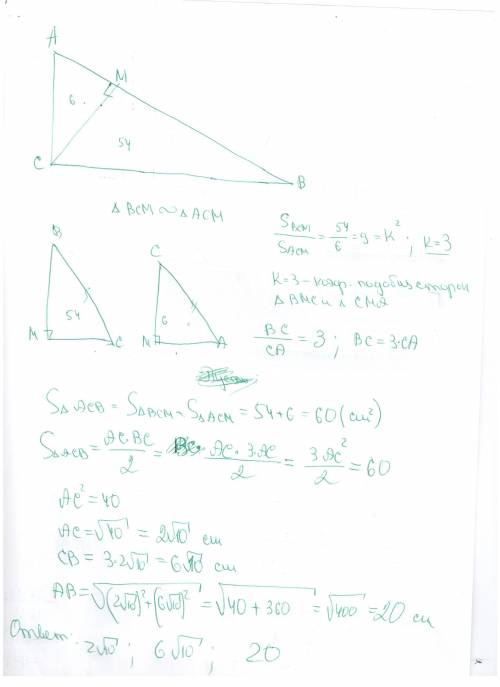 A
M
6
54
C
B
△ BCM ∾ △ ACM
S_BCM / S_ACM = 54/6 = 9 = K² ; K=3
K=3 – коэф. подобия сторон
△ BMC и △ CMA
BC / CA = 3 ; BC = 3·CA
B
54
M
C
C
6
M
A
S△ACB = S△BCM + S△ACM = 54+6 = 60 (см²)
S△ACB = AC·BC / 2 = AC·3AC / 2 = 3AC² / 2 = 60
AC² = 40
AC = √40 = 2√10 см
CB = 3·2√10 = 6√10 см
AB = √(2√10)²+(6√10)² = √40 + 360 = √400 = 20 см
Ответ: 2√10 ; 6√10 ; 20